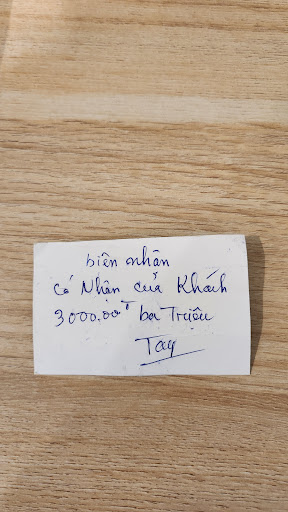 biên nhân
có Nhận của Khách
3000.00T ba Triệu
Tay